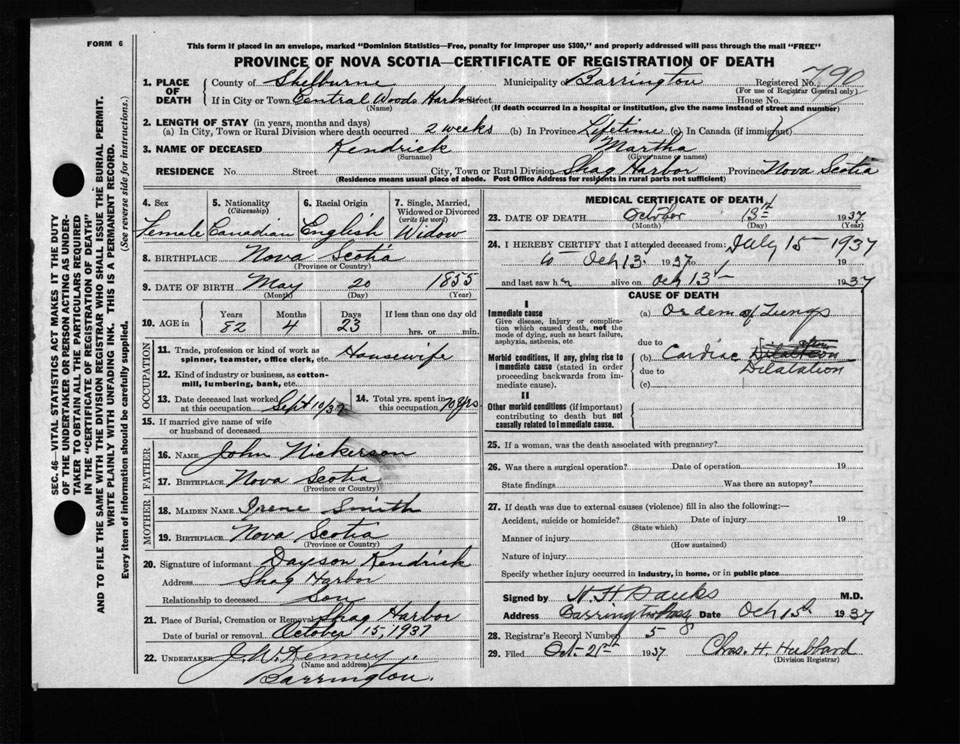 FORM 6
This form if placed in an envelope, marked "Dominion Statistics—Free, penalty for improper use $300," and properly addressed will pass through the mail "FREE"
PROVINCE OF NOVA SCOTIA—CERTIFICATE OF REGISTRATION OF DEATH
1. PLACE OF DEATH
County of Shelburne Municipality Barrington Registered No. 790
(For use of Registrar General only)
If in City or Town Central Woods Harbor Street House No.
(Name) (If death occurred in a hospital or institution, give the name instead of street and number)
2. LENGTH OF STAY (in years, months and days)
(a) In City, Town or Rural Division where death occurred 2 weeks (b) In Province Lifetime (c) In Canada (if immigrant)
3. NAME OF DECEASED Kendrick Martha
(Surname) (Given name or names)
RESIDENCE No. Street City, Town or Rural Division Shag Harbor Province Nova Scotia
(Residence means usual place of abode. Post Office Address for residents in rural parts not sufficient)
4. Sex Female
5. Nationality (Citizenship) Canadian
6. Racial Origin English
7. Single, Married, Widowed or Divorced (write the word) Widow
8. BIRTHPLACE Nova Scotia
(Province or Country)
9. DATE OF BIRTH May 20 1855
(Month) (Day) (Year)
10. AGE in Years 82 Months 4 Days 23 If less than one day old hrs. or min.
OCCUPATION
11. Trade, profession or kind of work as spinner, teamster, office clerk, etc. Housewife
12. Kind of industry or business, as cotton-mill, lumbering, bank, etc.
13. Date deceased last worked at this occupation Sept 10/37
14. Total yrs. spent in this occupation yrs
15. If married give name of wife or husband of deceased
FATHER
16. NAME John Nickerson
17. BIRTHPLACE Nova Scotia
(Province or Country)
MOTHER
18. MAIDEN NAME Irene Smith
19. BIRTHPLACE Nova Scotia
(Province or Country)
20. Signature of informant Dayson Kendrick
Address Shag Harbor
Relationship to deceased Son
21. Place of Burial, Cremation or Removal Shag Harbor
Date of burial or removal October 15, 1937
22. UNDERTAKER J. W. Kenney
(Name and address)
Barrington.
MEDICAL CERTIFICATE OF DEATH
23. DATE OF DEATH October 13th 1937
(Month) (Day) (Year)
24. I HEREBY CERTIFY that I attended deceased from: July 15 1937
to Oct 13 1937 to 19
and last saw her alive on Oct 13th 1937
CAUSE OF DEATH
I
Immediate cause
Give disease, injury or complication which caused death, not the mode of dying, such as heart failure, asphyxia, asthenia, etc.
(a) Ordem of Lungs
due to
Morbid conditions, if any, giving rise to immediate cause (stated in order proceeding backwards from immediate cause).
(b) Cardiac
due to Dilatation
(c)
II
Other morbid conditions (if important) contributing to death but not causally related to immediate cause.
25. If a woman, was the death associated with pregnancy?
26. Was there a surgical operation? Date of operation 19
State findings Was there an autopsy?
27. If death was due to external causes (violence) fill in also the following:—
Accident, suicide or homicide? Date of injury 19
(State which)
Manner of injury
(How sustained)
Nature of injury
Specify whether injury occurred in industry, in home, or in public place
Signed by H Banks M.D.
Address Barrington Pass Date Oct 15th 1937
28. Registrar's Record Number 5
29. Filed Oct 21st 1937 Chas. H. Hubbard
(Division Registrar)
SEC. 46—VITAL STATISTICS ACT MAKES IT THE DUTY
OF THE UNDERTAKER OR PERSON ACTING AS UNDER-
TAKER TO OBTAIN ALL THE PARTICULARS REQUIRED
IN THE "CERTIFICATE OF REGISTRATION OF DEATH"
AND TO FILE THE SAME WITH THE DIVISION REGISTRAR WHO SHALL ISSUE THE BURIAL PERMIT.
WRITE PLAINLY WITH UNFADING INK. THIS IS A PERMANENT RECORD.
Every item of information should be carefully supplied. (See reverse side for instructions.)